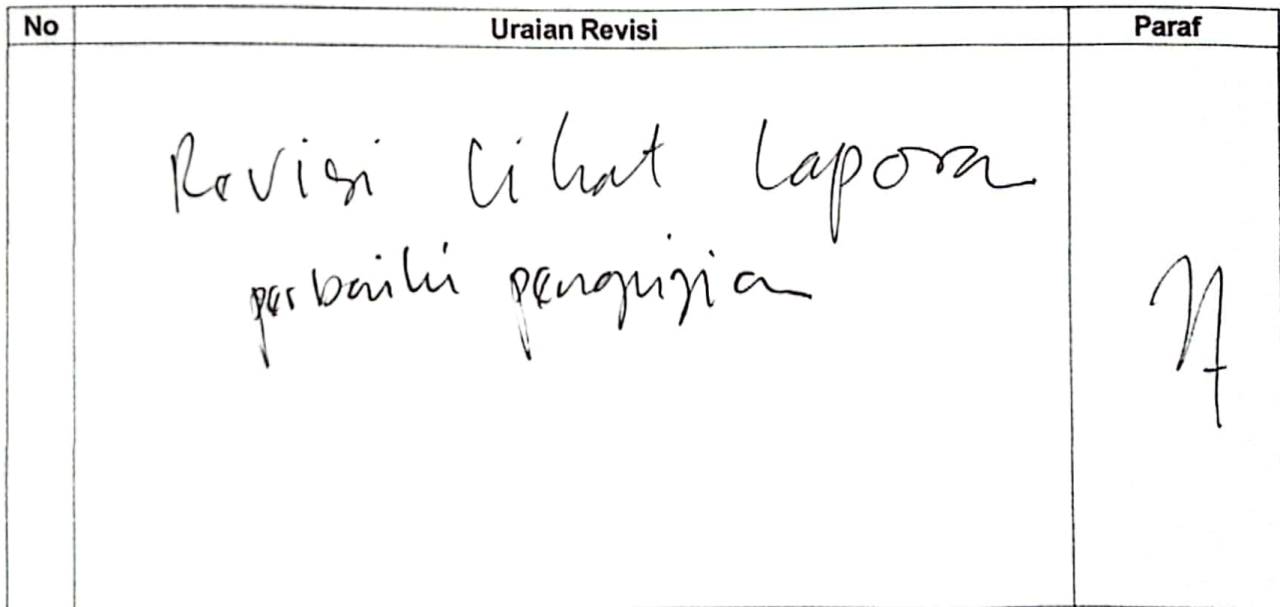 No Uraian Revisi Paraf
Revisi lihat laporan
perbaiki pengujian